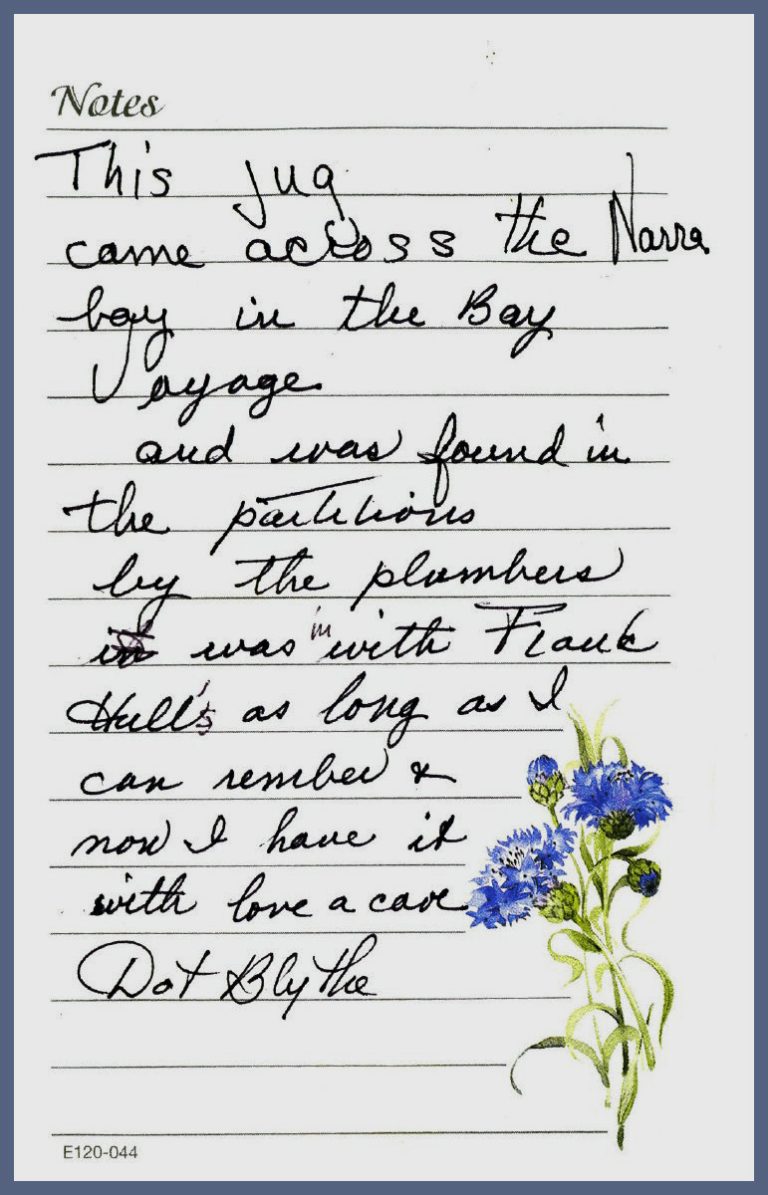 Notes
This jug
came across the Narra
bay in the Bay
Voyage.
and was found in
the partitions
by the plumbers
was in with Frank
Hull's as long as I
can rember &
now I have it
with love a care
Dot Blythe
E120-044